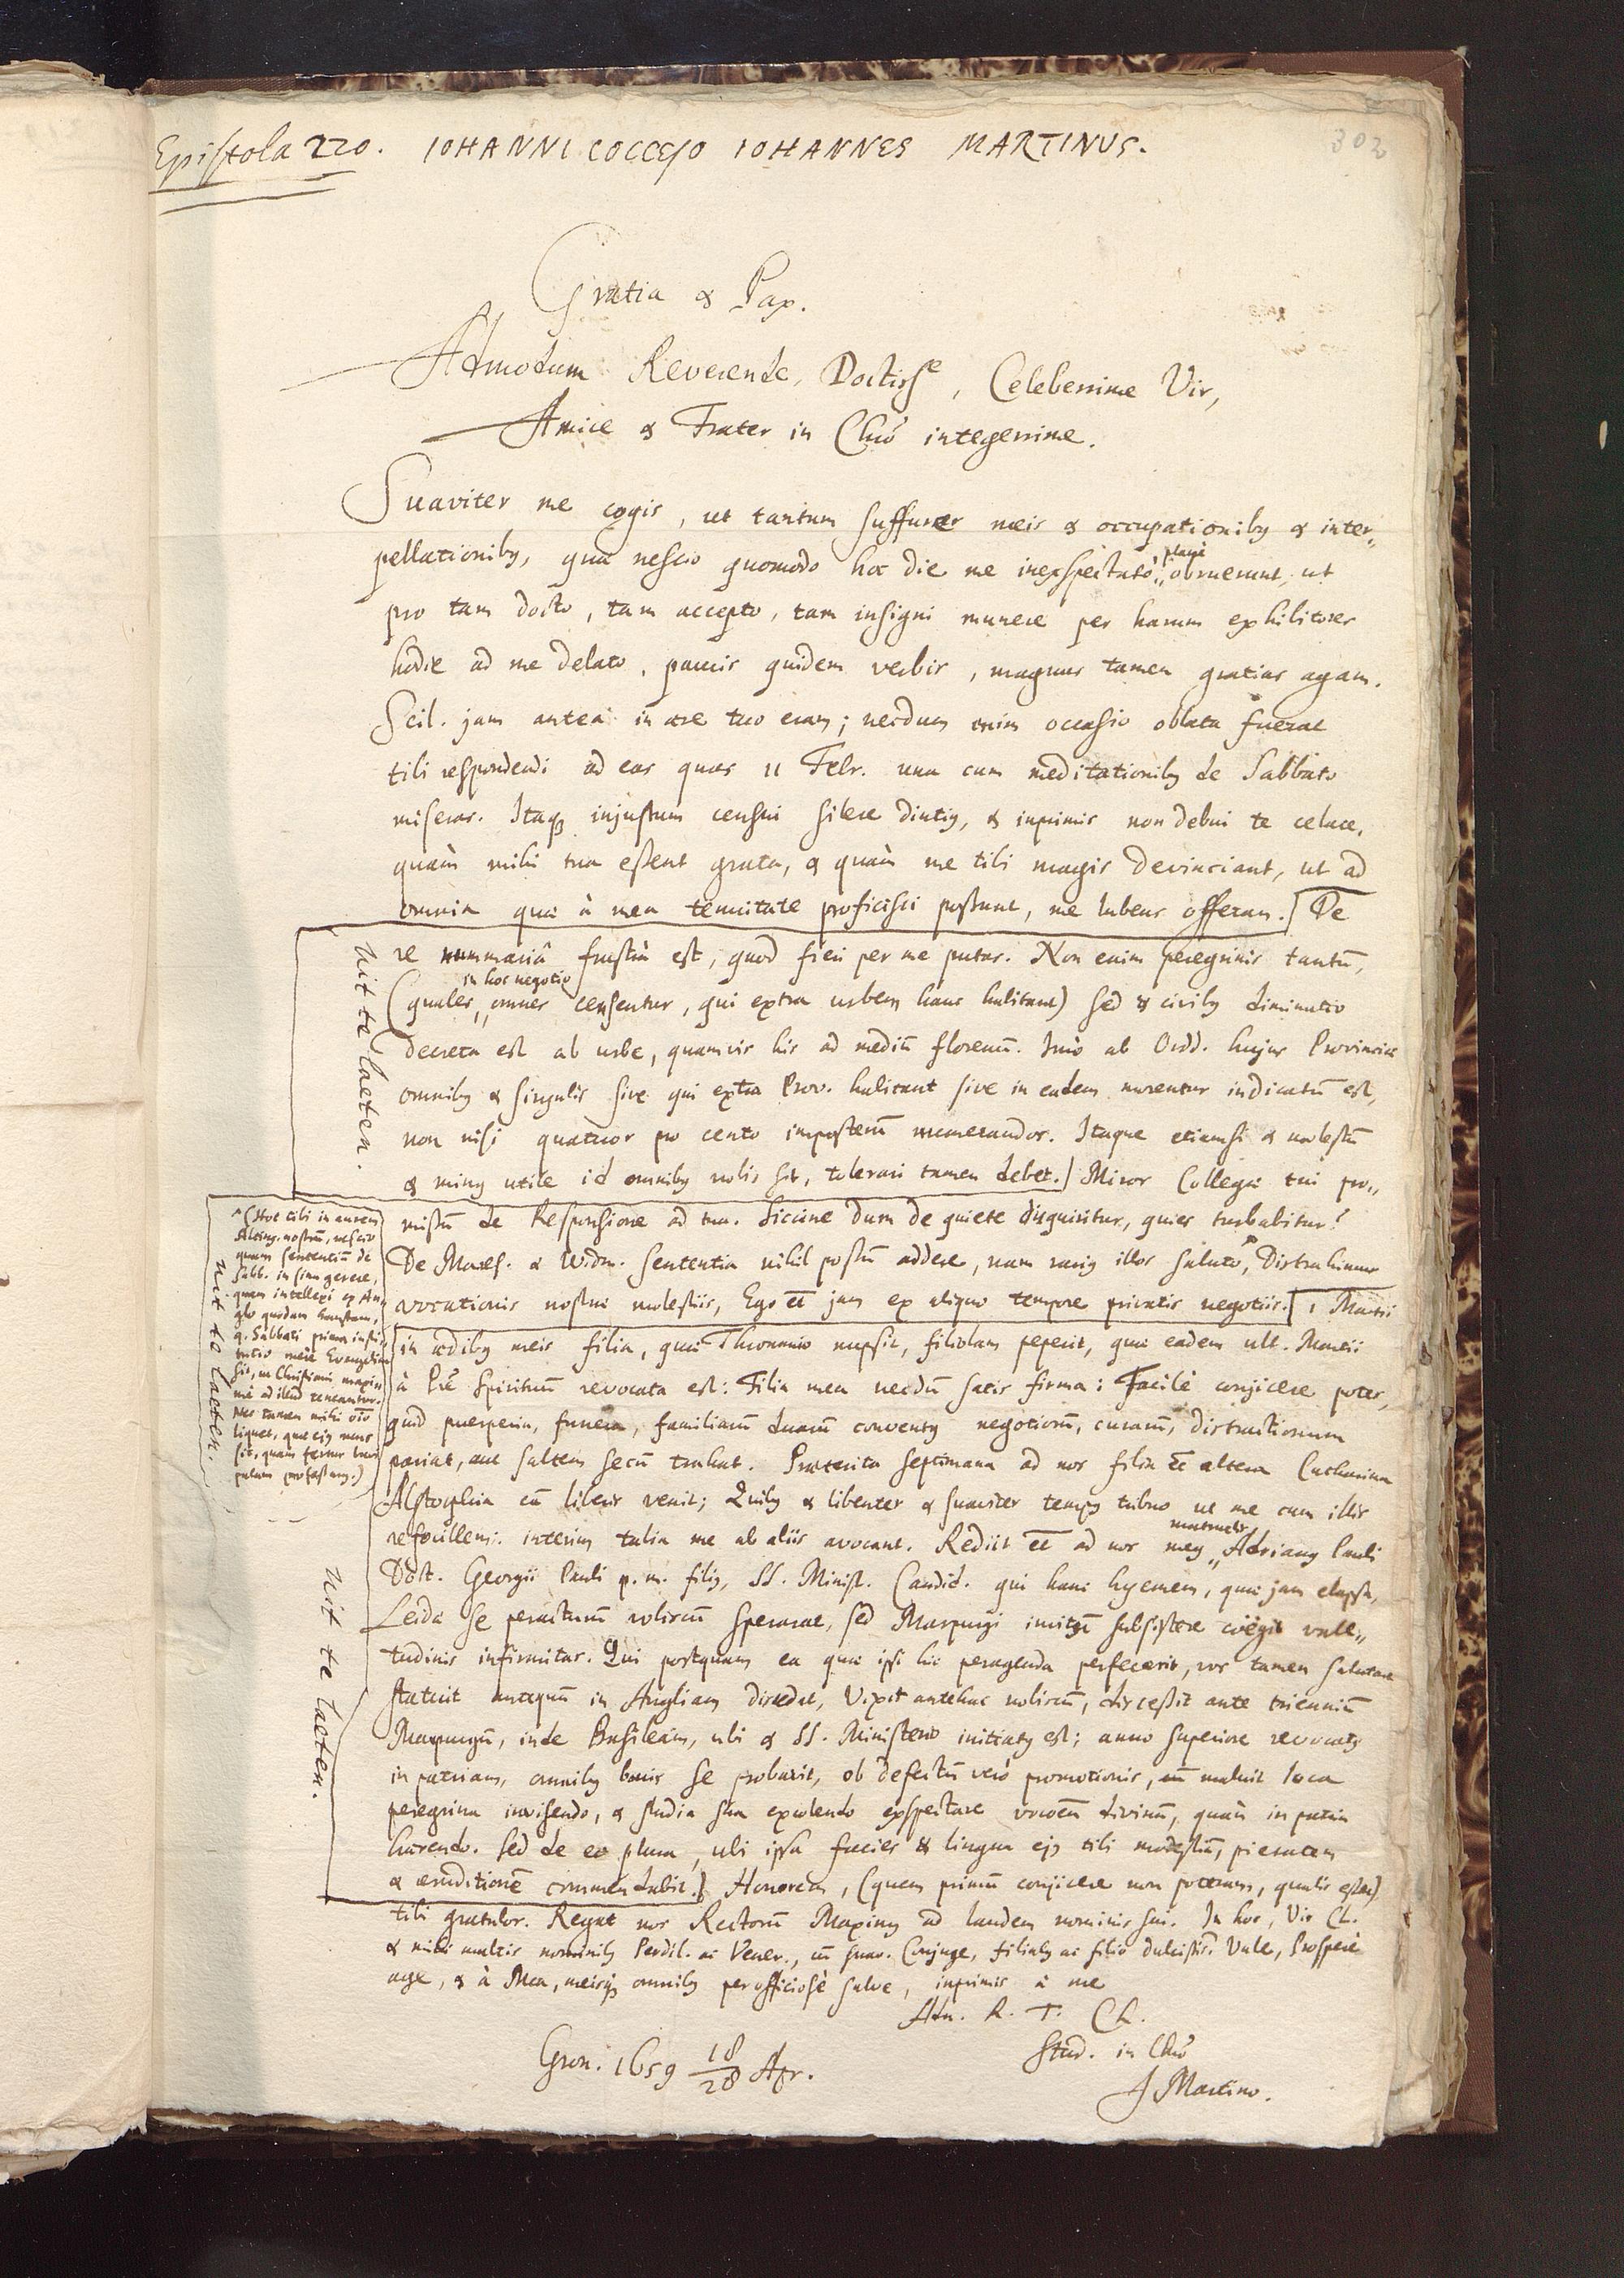 Epistola 220. IOHANNI COCCEJO IOHANNES MARTINUS.
303
Gratia & Pax.
Admodum Reverende, Doctisse, Celeberrime Vir,
Amice & Frater in Chro integerrime.
Suaviter me cogis, ut tantum suffurer meis & occupationibq & inter„
pellationibq, quæ nescio quomodo hoc die me inexspectatò plane obruerunt, ut
pro tam docto, tam accepto, tam insigni munere per harum exhibitores
hodie ad me delato, paucis quidem verbis, magnas tamen gratias agam.
Scil. jam anteà in ære tuo eram; necdum enim occasio oblata fuerat
tibi respondendi ad eas quas 11 Febr. una cum meditationibq de Sabbato
miseras. Itaq injustum censui silere diutiq, & inprimis non debui te celare,
quàm mihi tua essent grata, & quàm me tibi magis devinciant, ut ad
omnia quæ à mea tenuitate proficisci possunt, me lubens offeram.] De
re nummariâ frustrà est, quod fieri per me putas. Non enim peregrinis tantū,
(quales in hoc negotio omnes censentur, qui extra urbem hanc habitant) sed & civibq diminutio
decreta est ab urbe, quamvis his ad mediū florenū. Imò ab Ordd. hujus Provinciæ
omnibq & singulis sive qui extra Prov. habitant sive in eadem morentur indicatū est,
non nisi quatuor pro cento imposterū numerandos. Itaque etiamsi & molestū
& minq utile id omnibq nobis sit, tolerari tamen debet.] Miror Collegæ tui pro„
missū de Responsione ad tua. Siccine dum de quiete disquiritur, quies turbabitur?
De Mares. & Widm. sententia nihil possū addere, nam rariq illos saluto, Distrahimur
vocationis nostræ molestiis, Ego et jam ex aliquo tempore privatis negotiis.[ 1 Martii
in ædibq meis filia, quæ nupsit, filiolam peperit, quæ eadem ult. Martii
à Pre Spirituum revocata est: Filia mea necdū satis firma: Facilè conjicere potes,
quid puerperia, funera, familiarū duarū conventq negotiorū, curarū, distractionum
pariat, aut saltem secū trahat. Præterita septimana ad nos filia et altera Catharina
cū liberis venit; Quibq & libenter & suaviter tempq tribuo ut me cum illis
refocillem: interim talia me ab aliis avocant. Rediit et ad nos meq Adrianq Pauli
Doct. Georgii Pauli p. m. filiq, SS. Minist. Candid. qui hanc hyemem, quæ jam elapsa,
Leidæ se peracturū vobiscū sperarat, sed Marpurgi invitū subsistere coëgit vale„
tudinis infirmitas. Qui postquam ea quæ ipsi hic peragenda perfecerit, vos tamen salutare
statuit antequā in Angliam discedat, Vixit antehac nobiscū, discessit ante triennium
Marpurgū, inde Basileam, ubi & SS. Ministerio initiatq est; anno superiore revocatq
in patriam, omnibq bonis se probavit, ob defectū verò promotionis, maluit loca
peregrina invisendo, & studia sua excolendo exspectare vocem divinā, quàm in patria
hærendo. Sed de eo plura, ubi ipsa facies & lingua ejq tibi modestiā, pietatem
& eruditionē commendabit.] Honorem, (quem primū conjicere non poteram, qualis esset)
tibi gratulor. Regat nos Rectorū Maximq ad laudem nominis sui. In hoc, Vir Cl.
& mihi multis nominibq Perdil. ac Vener., cū suav. Conjuge, filiabq ac filio dulcissimo Vale, Prosperè
age, & à Mea, meisq omnibq perofficiosè salve, inprimis à me
Adm. R. T. Cl.
Stud. in Chro
J Martino.
Gron. 1659 18/28 Apr.
uit te laeten.
^(Hoc tibi in aurem
Alting. nostrū, nescio
quam sententiā de
Sabb. in sinu gerere,
quam intellexi ex An„
glo quodam
q. Sabbati prima insti„
tutio merè Evangelica
sit, ut Christiani maxi„
me ad illud teneantur.
Nec tamen mihi
liquet, quæ ejq mens
sit, quam fertur
profess.)
uit te laeten.
uit te laeten.